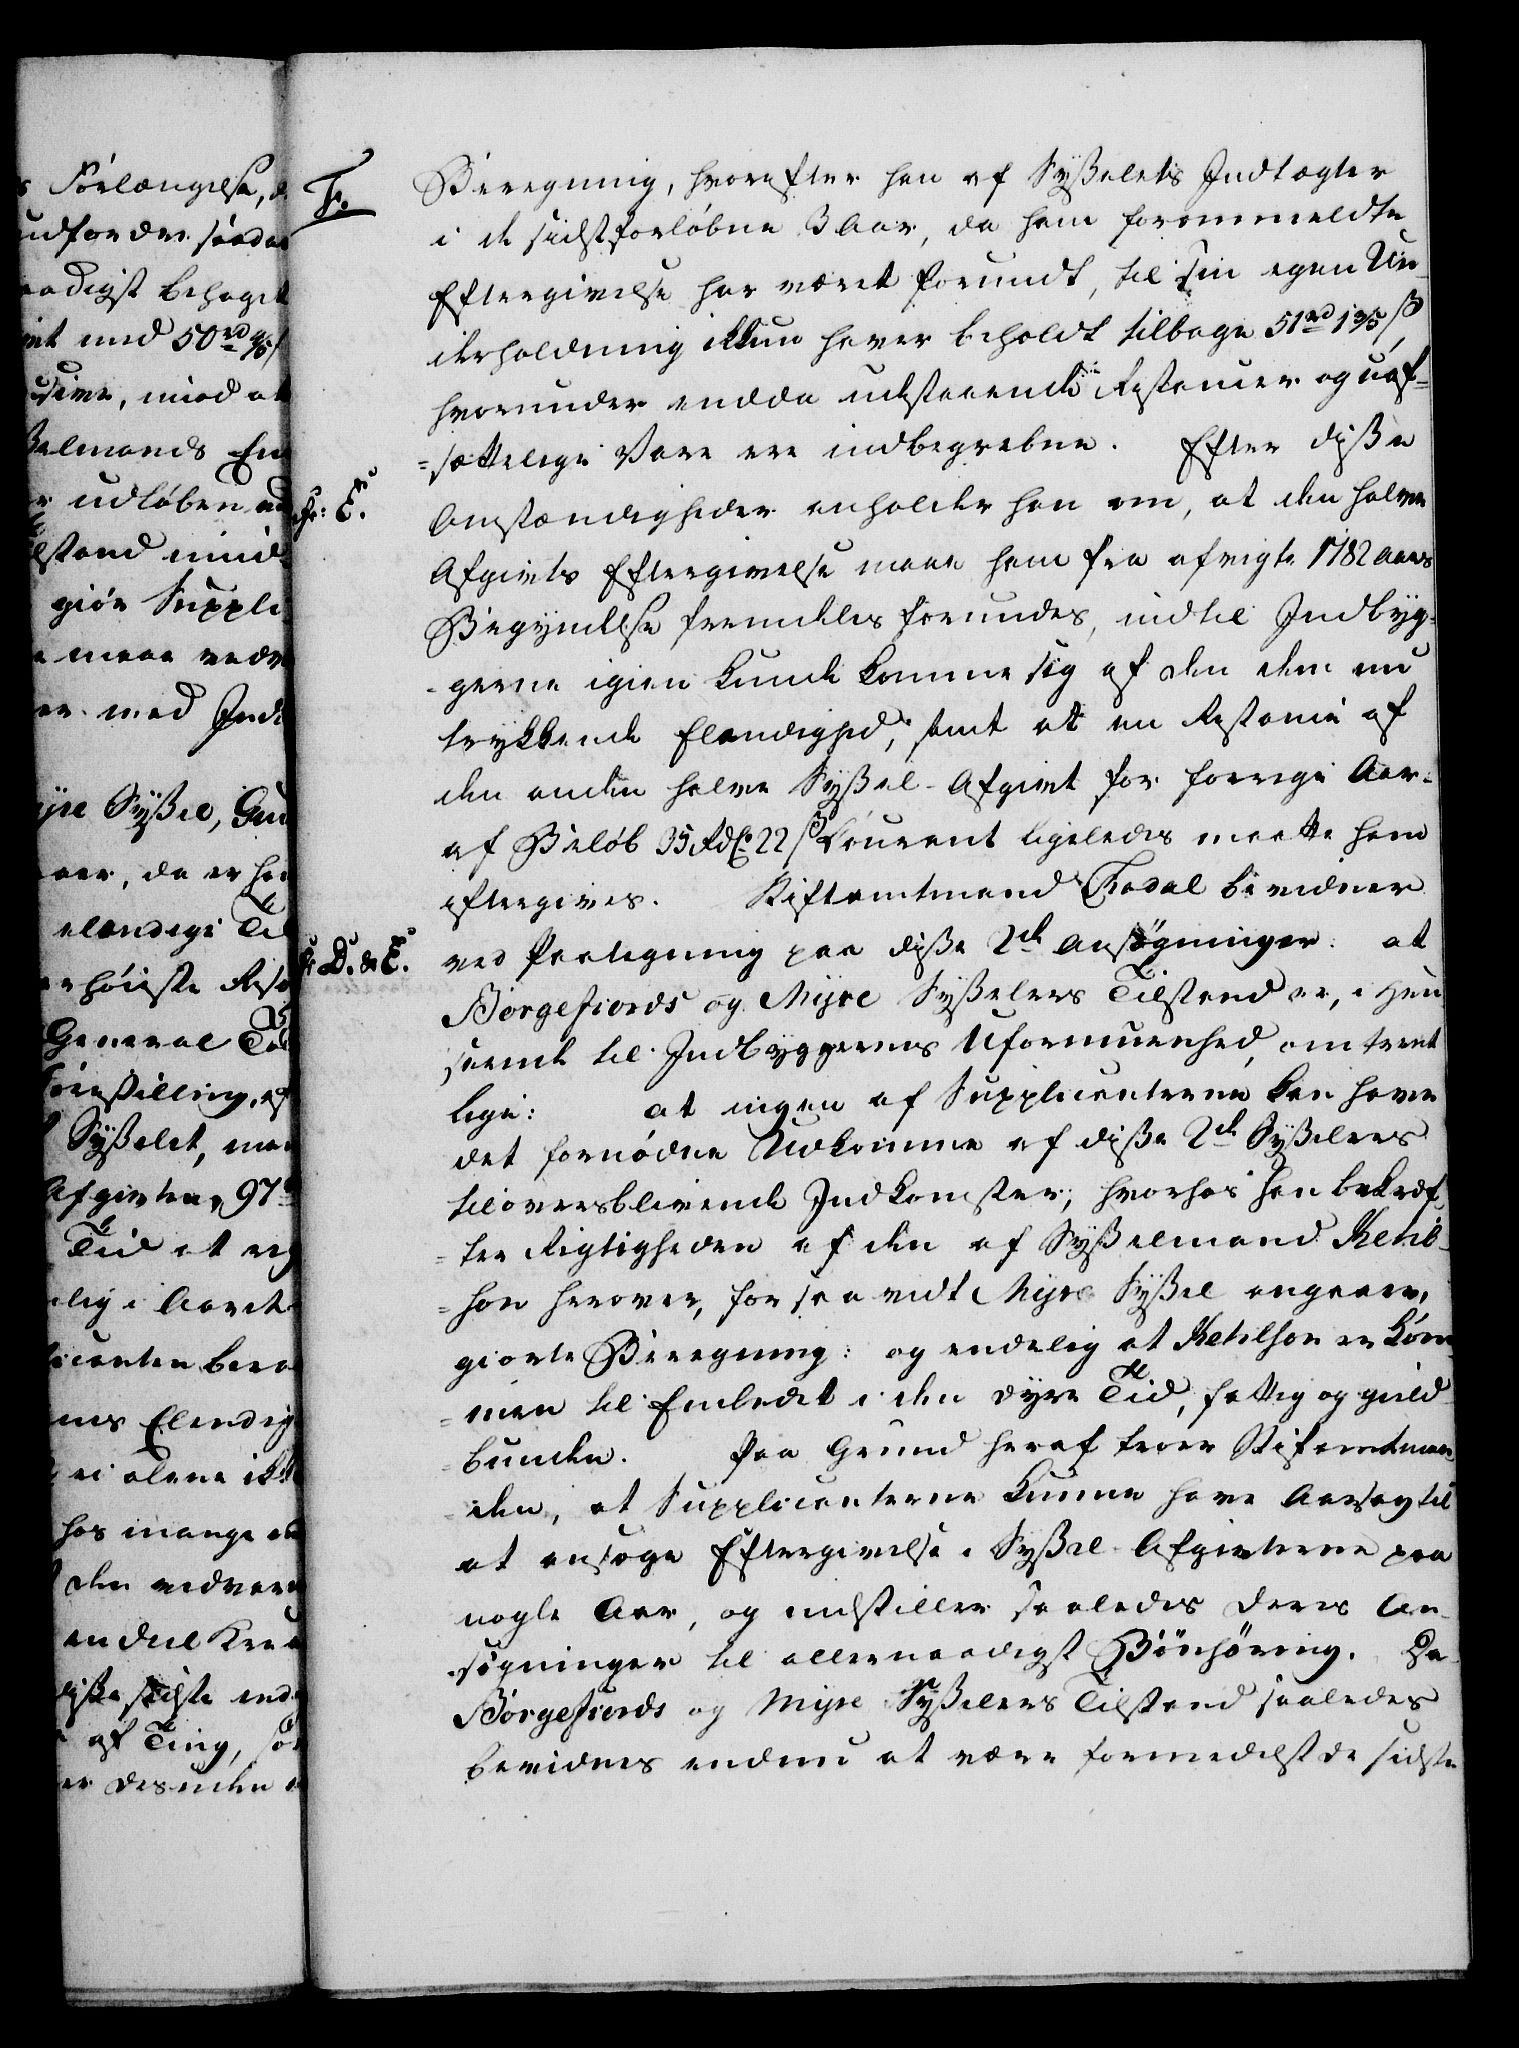 s Forlængelse, d
udfordre saadan
aadigst behaget
int med 50 rd
usive, imod at
ßelmands Em
r udløben
lstand imid
giør Suppli
maae vedv
er med Ind
ijre Syßel, Gud
aar, da er ha
elændige Til
r høieste Reso
General Tol
orestilling, af
Syßelet, man
Afgivten, 97
Tid at
elig i Aaret
licanten bero
nes Elendig
ei alene ikk
hos mange
den vedvar
en deel Krea
diße sidste end
af Ting, som
er desuden
F.
Beregning, hvorefter han af Syßelets Indtægter
i de sidstforløbne 3 Aar, da ham forommeldte
Eftergivelse har været forundt, til sin egen Un-
derholdning ikkun haver beholdt tilbage 51 rd 13 5/ ß,
hvorunder endda udstaaende Restancer og uaf-
=sættelige Vare ere indbegrebne. Efter diße
fr: E.
Omstændigheder anholder han om, at den halve
Afgivts Eftergivelse maae ham fra afvigte 1782 Aars
Begyndelse fremdeles forundes, indtil Indbyg-
-gerne igien kunde komme sig af den dem nu
trykkende Elendighed, samt at en Restance af
den anden halve Syßel-Afgivt for forrige Aar-
af Beløb 35 Rdlr. 22 ß Courant ligeledes maatte ham
eftergives. Stiftamtmand Thodal bevidner
fr D. & E.
ved Paategning paa diße 2de Ansøgninger: at
Borgefiords og Myre Syßelers Tilstand er, i Hen-
seende til Indbyggernes Uformuenhed, omtrent
lige: at ingen af Supplicanterne kan have
det fornødne Udkomme af diße 2de Syßelers
tiloversblivende Indkomster, hvorhos han bekræf-
=ter Rigtigheden af den af Syßelmand Ketil-
=son herover, for saavidt Myre Syßel angaaer,
giorte Beregning: og endelig at Ketilson er kom-
=men til Embedet i den dyre Tid, fattig og gield-
=bunden. Paa Grund heraf troer Stiftamtman-
=den, at Supplicanterne kunne have Aarsag til
at ansøge Eftergivelse i Syßel-Afgivterne paa
nogle Aar, og indstiller saaledes deres An-
-søgninger til allernaadigst Bönhöring. Da
Borgefiords og Myre Syßelers Tilstand saaledes
bevidnes endnu at være formedelst de sidste